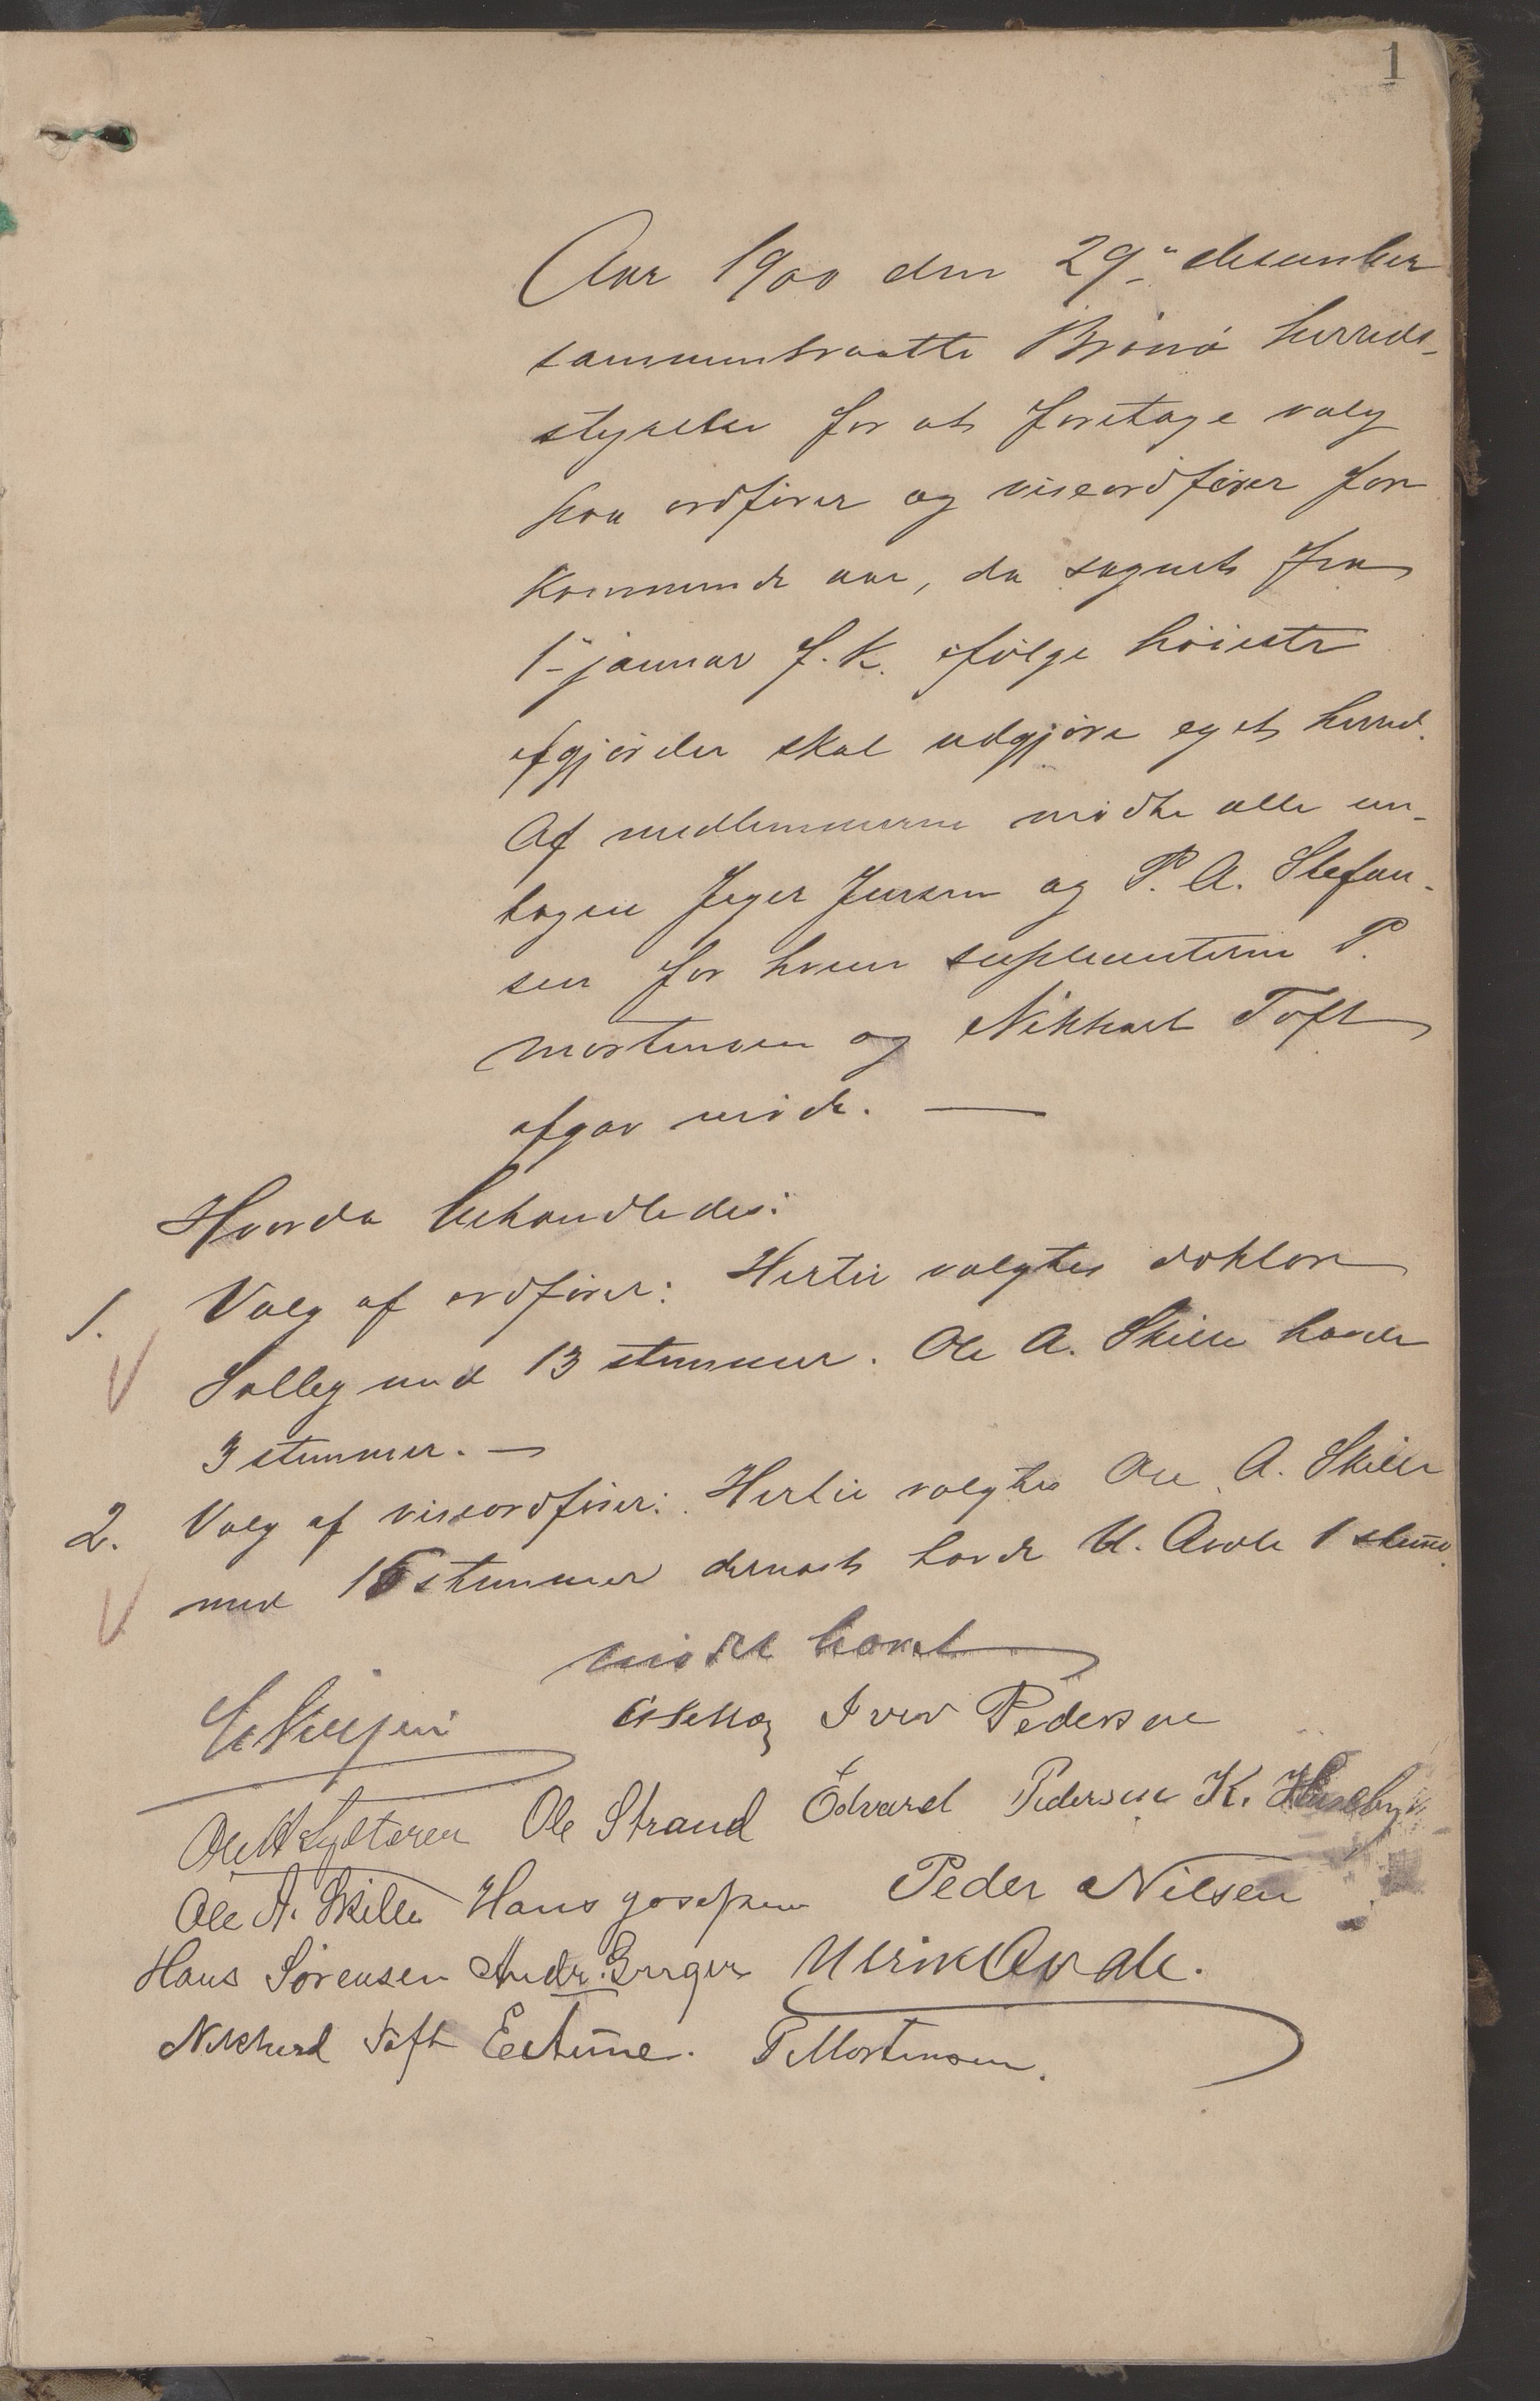 1
Aar 1900 den 29de desember
sammentraatte Brönö herreds-
styrelse for at foretage valg
paa ordförer og viseordförer for
kommende aar, da sognet fra
1ste januar f. k. ifölge höieste
afgjörelse skal udgjöre eget herred.
Af medlemmerne mödte alle un-
tagen Jeger Jensen og P. A. Stefan-
sen for hvem suplenterne P.
Mortensen og Nikhard Toft
afgav möde. —
Hvorda behandledes:
1. Valg af ordförer: Hertil valgtes doktor
Solley med 13 stemmer. Ole A. Skille havde
3 stemmer. —
2. Valg af viseordförer: Hertil valgtes Ole A. Skille
med 15 stemmer dernest havde U. Avde 1 stem̄e.
mödet hævet
Iver Pedersen
Ole Strand Edvard Pedersen K. Huseby
Ole A. Skille Hans Josefsen Peder Nilsen
Hans Sörensen Andr. Ulrik Avde.
Nikhard Toft P Mortensen.